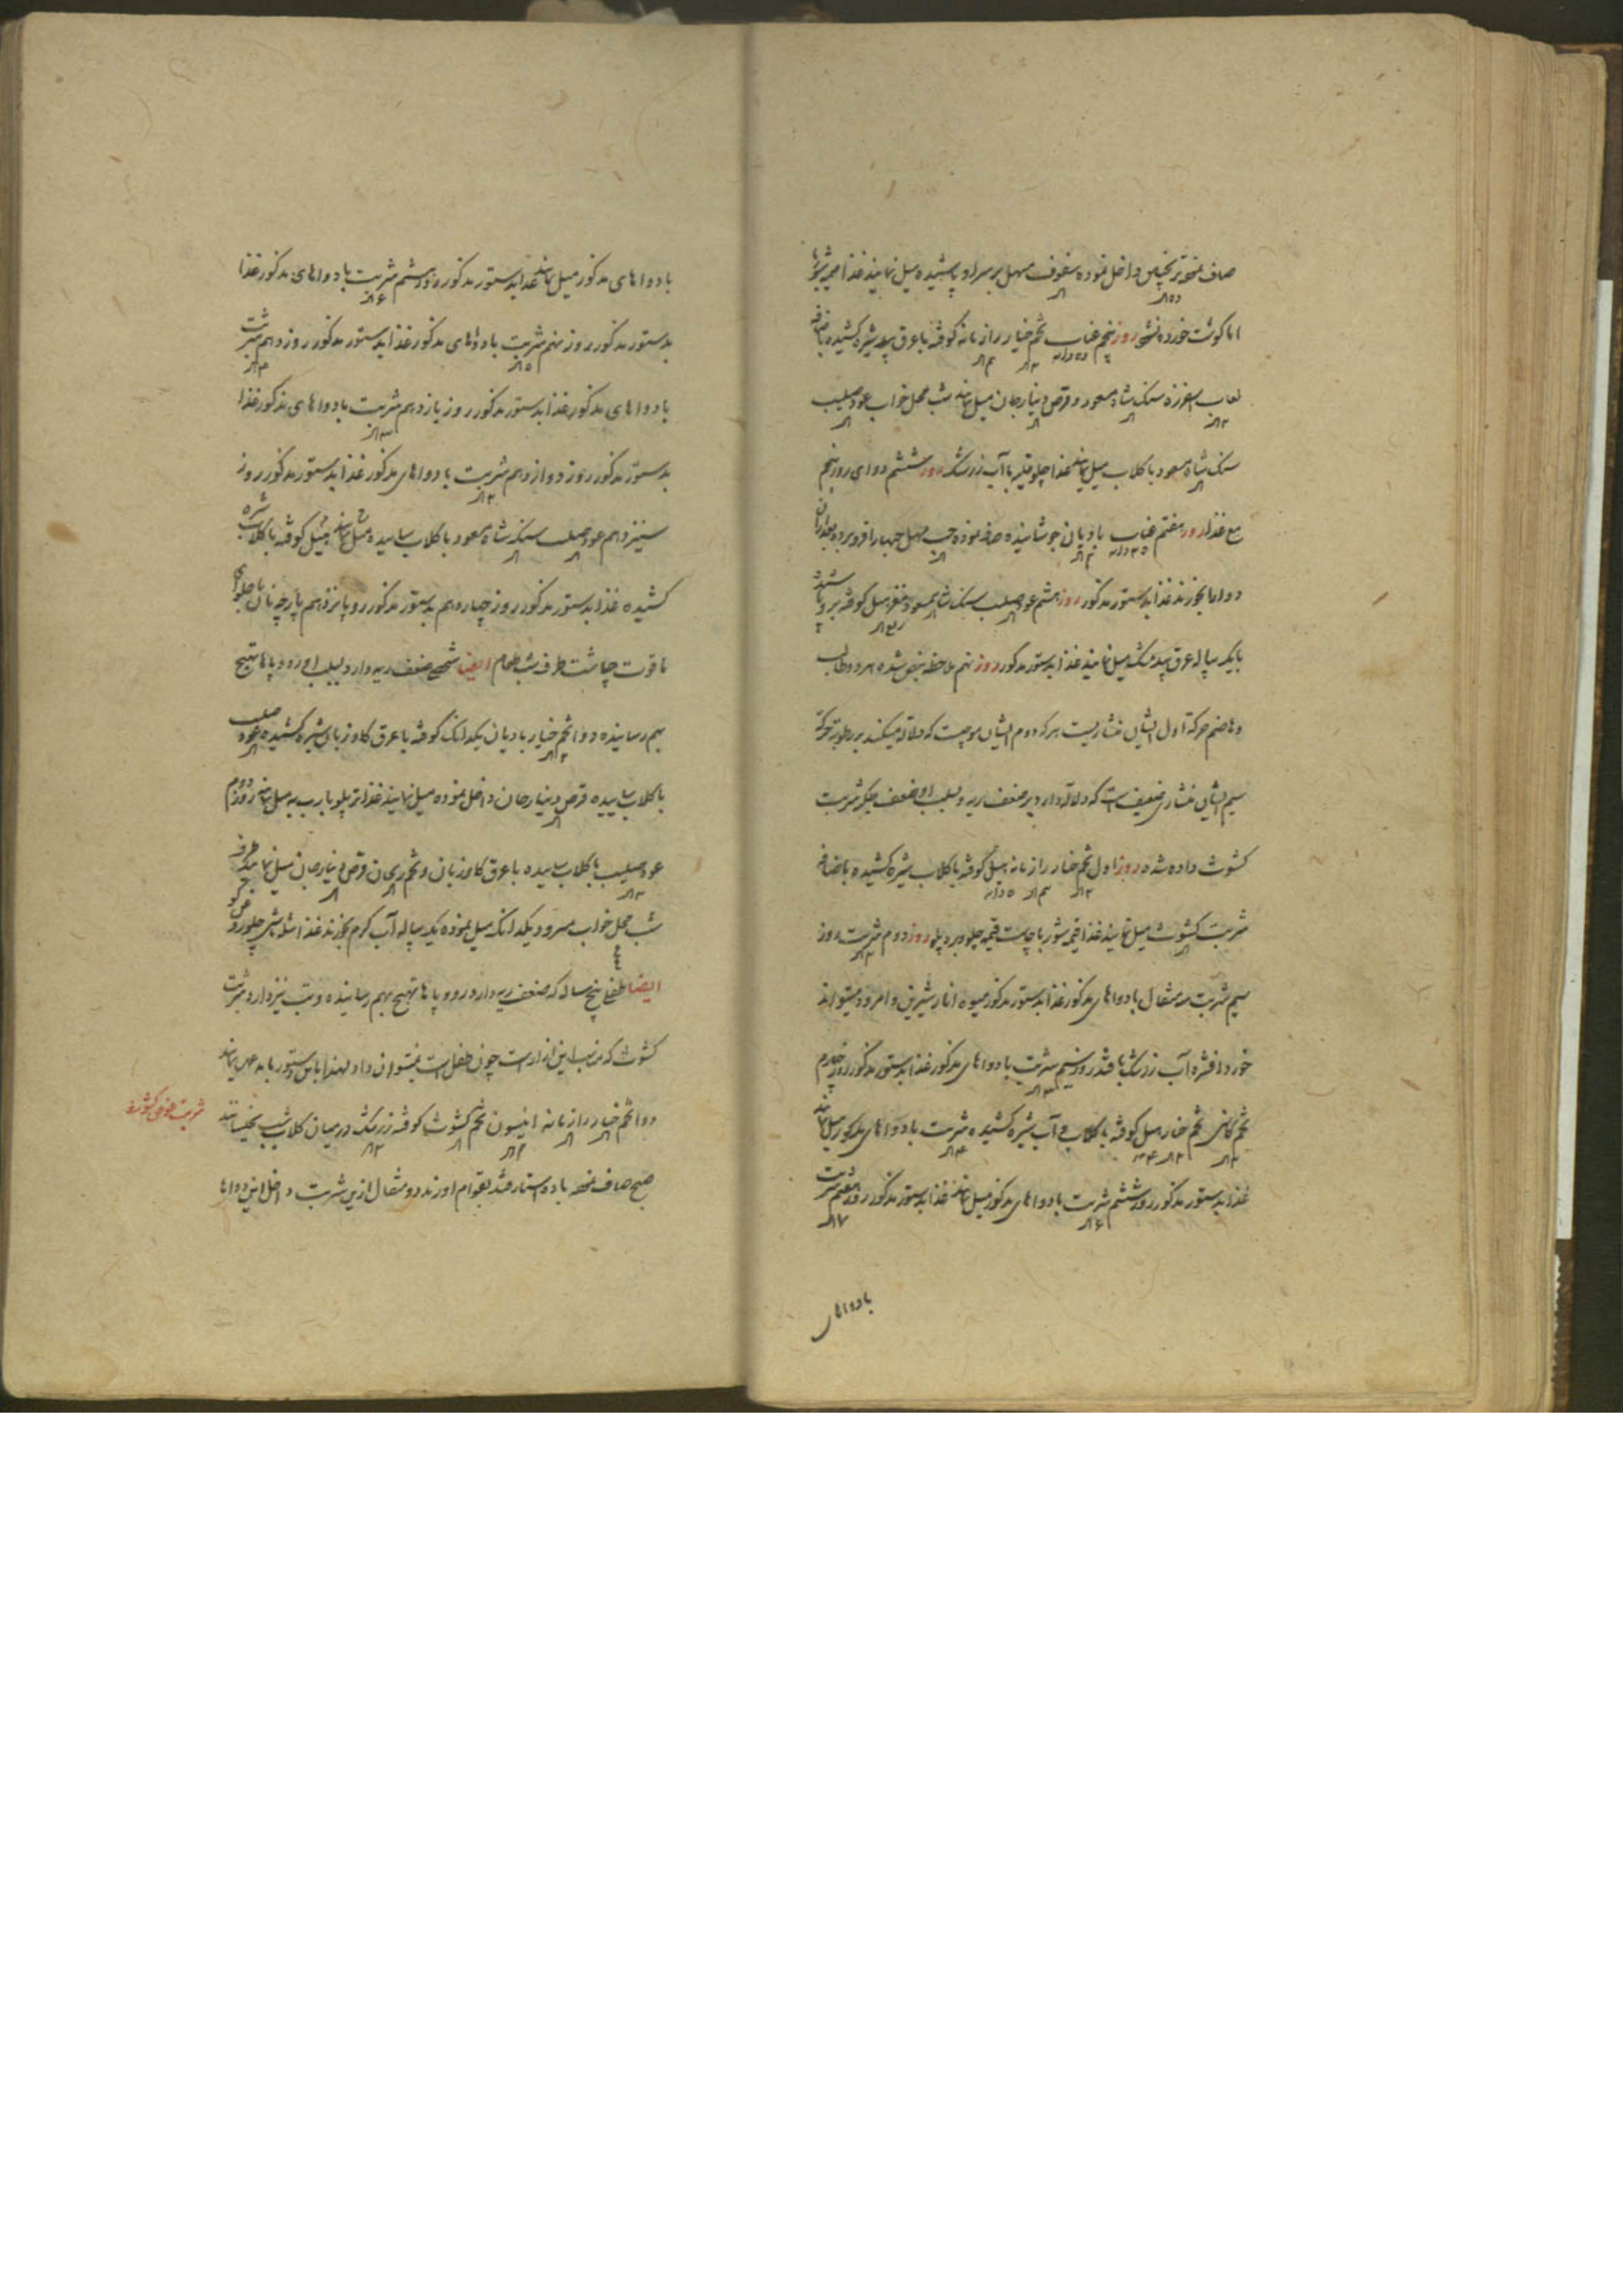 صاف نموده ترنجبین داخل نموده سفوف مسهل بر سر او پاشیده میل نمایند غذا قیمه شوربا
اما گوشت خورده نشود روز پنجم عناب تخم خیار رازیانه کوفته با عرق بید شیره کشیده باضافه
لعاب اسفرزه سنک شاه مسعود و قرص دینارجان میل نمایند شب محل خواب عود صلیب
سنک شاه مسعود با کلاب میل نمایند غذا چلو قلیه با آب زرشک روز ششم دوای روز پنجم
مع غذا روز هفتم عناب بادیان جوشانیده صاف نموده حب مسهل چهار را فرو برده بعد از ان
دواها بخورند غذا بدستور مذکور روز هشتم عود صلیب سنک شاه مسعود مغز هیل کوفته بر او پاشیده
با یک پیاله عرق بید مشک میل نمایند غذا بدستور مذکور روز نهم ملاحظه نبض شده
و هاضم حرکة اول ایشان منشاریست حرکه دوم ایشان موجیست که دلالة میکند بر رطوبة حرکة
سیم ایشان منشاری ضعیف است که دلالة دارد بر ضعف ریه و بسبب او ضعف جکر شربت
کشوث داده شده روز اول تخم خیار رازیانه هیل کوفته با کلاب شیره کشیده باضافه
شربت کشوث میل نمایند غذا قیمه شوربا چاشت قیمه چلو برد پلو روز دوم شربت روز
سیم شربت سه مثقال با دواهای مذکور غذا بدستور مذکور میوه انار شیرین و امرود میتواند
خورد افشره آب زرشک با قند روز سیم شربت با دواهای مذکور غذا بدستور مذکور روز پنجم
تخم کاسنی تخم خیار هیل کوفته با کلاب و آب شیره کشیده شربت با دواهای مذکور میل نمایند
غذا بدستور مذکور روز ششم شربت با دواهای مذکور میل نمایند غذا بدستور مذکور روز هفتم شربت
با دواهای
با دواهای مذکور میل نمایند غذا بدستور مذکور روز هشتم شربت با دواهای مذکور غذا
بدستور مذکور روز نهم شربت با دواهای مذکور غذا بدستور مذکور روز دهم شربت
با دواهای مذکور غذا بدستور مذکور روز یازدهم شربت با دواهای مذکور غذا
بدستور مذکور روز دوازدهم شربت با دواهای مذکور غذا بدستور مذکور روز
سیزدهم عود صلیب سنک شاه مسعود با کلاب ساییده میل نمایند هیل کوفته با کلاب شیره
کشیده غذا بدستور مذکور روز چهاردهم بدستور مذکور روز پانزدهم پارچه نان با حلوای
یاقوت چاشت طرف شب طعام ایضا شخصی ضعف ریه دارد بسبب او رو و پاها تهبج
بهم رسانیده دوا تخم خیار بادیان یکدانک کوفته با عرق کاوزبان شیره کشیده عود صلیب
با کلاب ساییده قرص دینارجان داخل نموده میل نمایند غذا تر پلو با رب به میل نمایند روز دوم
عود صلیب با کلاب ساییده با عرق کاوزبان و تخم ریحان قرص دینارجان میل نمایند طرف
شب محل خواب یکدانک میل نموده یک پیاله آب کرم بخورند غذا چلو
ایضا طفلی پنج ساله که ضعف ریه دارد رو و پاها تهبج بهم رسانیده و تب نیز دارد شربت
کشوث که مناسب این ازار است چون طفل است نمیتوان داد لهذا باین دستور باید عمل نمایند
دوا تخم خیار رازیانه انیسون تخم کشوث کوفته زرشک در میان کلاب شب بخیسانند
شربت کشوث
صبح صاف نموده با ده استار قند بقوام اورند دو مثقال ازین شربت داخل این دواها